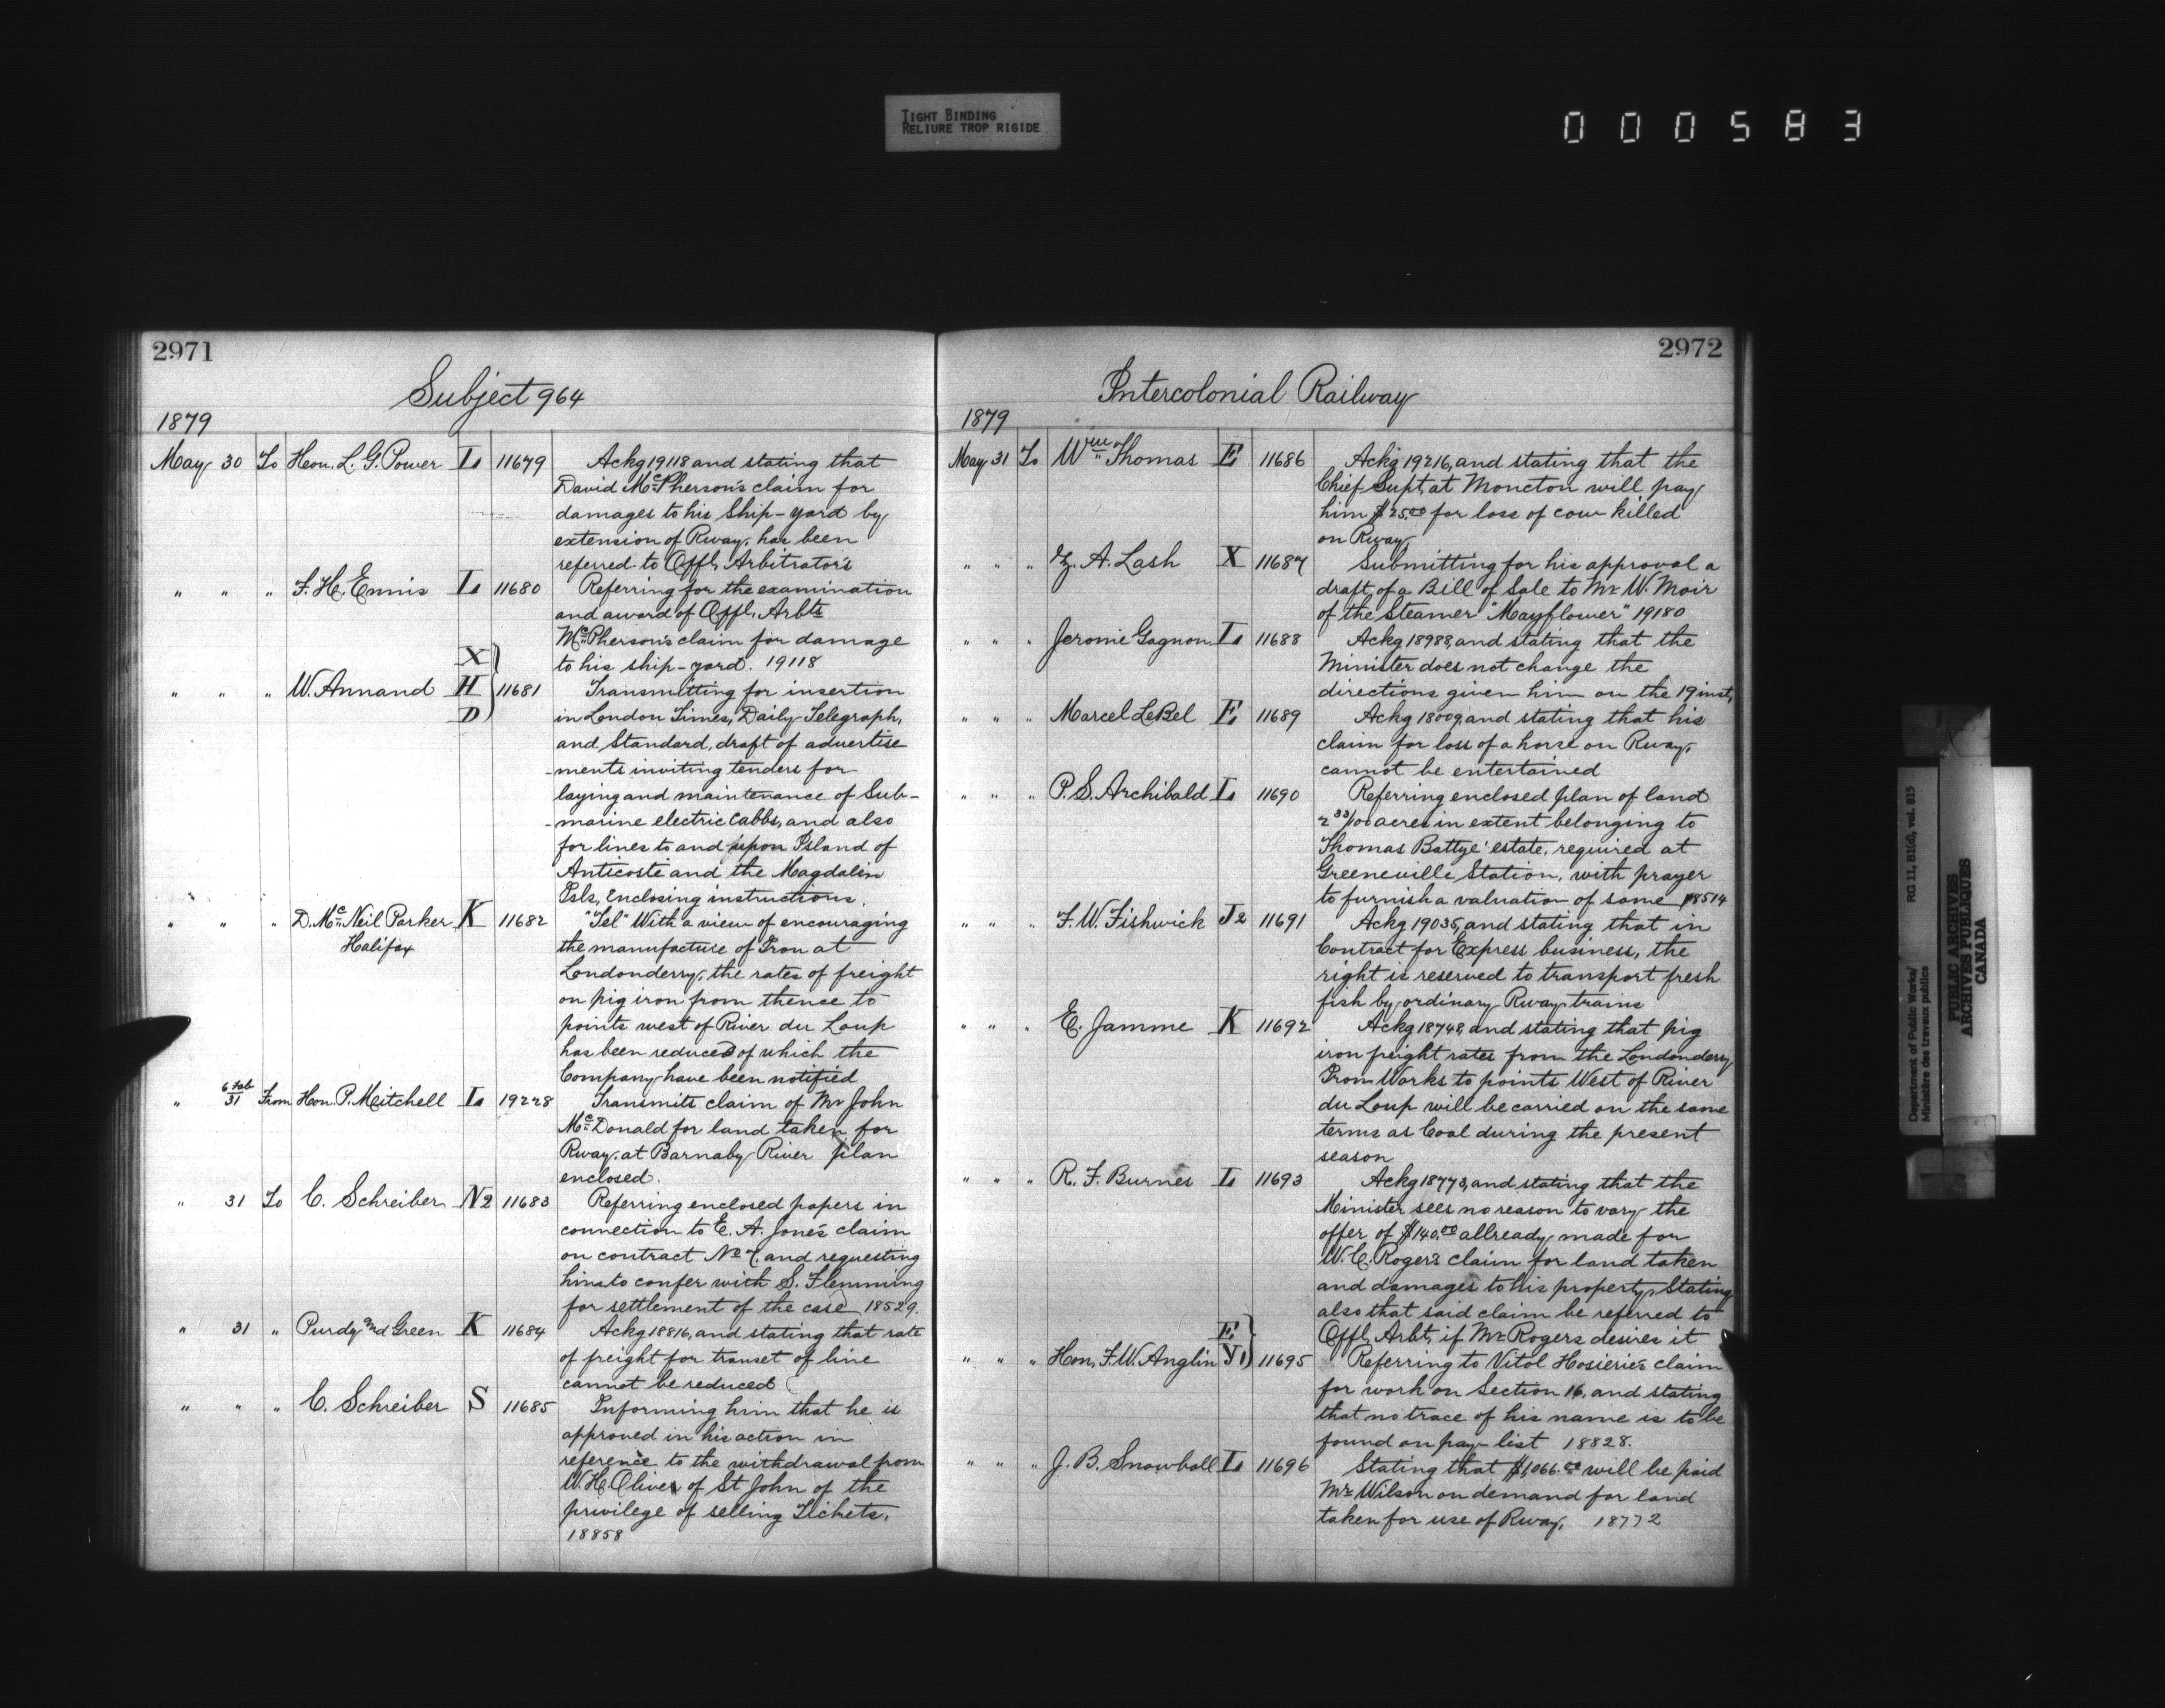 TIGHT BINDING
RELIURE TROP RIGIDE
000583
2971
Subject 964
1879
May 30 To Hon. L. G. Power L 11679 Ackg 19118 and stating that
David Mc Pherson's claim for
damages to his Ship-yard by
extension of Rway, has been
referred to Offl, Arbitrators
" " " F. H. Ennis L 11680 Referring for the examination
and award of Offl, Arbts
McPherson's claim for damage
to his ship-yard. 19118
" " " W. Annand X H D 11681 Transmitting for insertion
in London Times, Daily Telegraph,
and Standard, draft of advertise
-ments inviting tenders for
laying and maintenance of Sub-
-marine electric Cabbs, and also
for lines to and upon Island of
Anticosti and the Magdalin
Isls, Enclosing instructions.
" " " D. Mc Neil Parker K 11682 "Tel" With a view of encouraging
Halifax
the manufacture of Iron at
Londonderry, the rates of freight
on pig iron from thence to
points west of River du Loup
has been reduced of which the
Company have been notified
" 31 From Hon. P. Mitchell L 19228 Transmits claim of Mr John
McDonald for land taken for
Rway, at Barnaby River plan
enclosed.
" 31 To C. Schreiber N2 11683 Referring enclosed papers in
connection to E. A. Jone's claim
on contract No 7, and requesting
him to confer with S. Flemming
for settlement of the case 18529.
" 31 " Purdy and Green K 11684 Ackg 18816, and stating that rate
of freight for transet of line
cannot be reduced
" " " C. Schreiber S 11685 Informing him that he is
approved in his action in
reference to the withdrawal from
W. H. Oliver of St John of the
privilege of selling Tickets.
18858
2972
Intercolonial Railway
1879
May 31 To Wm Thomas E 11686 Ackg 19216, and stating that the
Chief Supt, at Moncton will pay
him $25.00 for loss of cow killed
on Rway,
" " " Z. A. Lash X 11687 Submitting for his approval a
draft, of a Bill of Sale to Mr W. Moir
of the Steamer "Mayflower" 19180
" " " Jerome Gagnon L 11688 Ackg 18988, and stating that the
Minister does not change the
directions given him on the 19 inst,
" " " Marcel LeBel E 11689 Ackg 18009, and stating that his
claim for loss of a horse on Rway,
cannot be entertained
" " " P. S. Archibald L 11690 Referring enclosed plan of land
2 33/100 acres in extent belonging to
Thomas Battye' estate, required at
Greeneville Station, with prayer
to furnish a valuation of same 18514
" " " F. W. Fishwick J2 11691 Ackg 19035, and stating that in
Contract for Express business, the
right is reserved to transport fresh
fish by ordinary Rway trains
" " " E. Jamme K 11692 Ackg 18748, and stating that pig
iron freight rates from the Londonderry
Iron Works to points West of River
du Loup will be carried on the same
terms as Coal during the present
season
" " " R. F. Burnes L 11693 Ackg 18773, and stating that the
Minister sees no reason to vary the
offer of $140.00 allready made for
W. C. Roger's claim for land taken
and damages to his property, Stating
also that said claim be referred to
Offl, Arbt, if Mr Rogers desires it
" " " Hon, F. W. Anglin E 11695 Referring to Vitol Hosierie's claim
for work on Section 16, and stating
that no trace of his name is to be
found on pay-list 18828.
" " " J. B. Snowball L 11696 Stating that $1,066.00 will be paid
Mr Wilson on demand for land
taken for use of Rway, 18772
Department of Public Works/ RG 11, B1(d), vol. 815
Ministère des travaux publics
PUBLIC ARCHIVES
ARCHIVES PUBLIQUES
CANADA